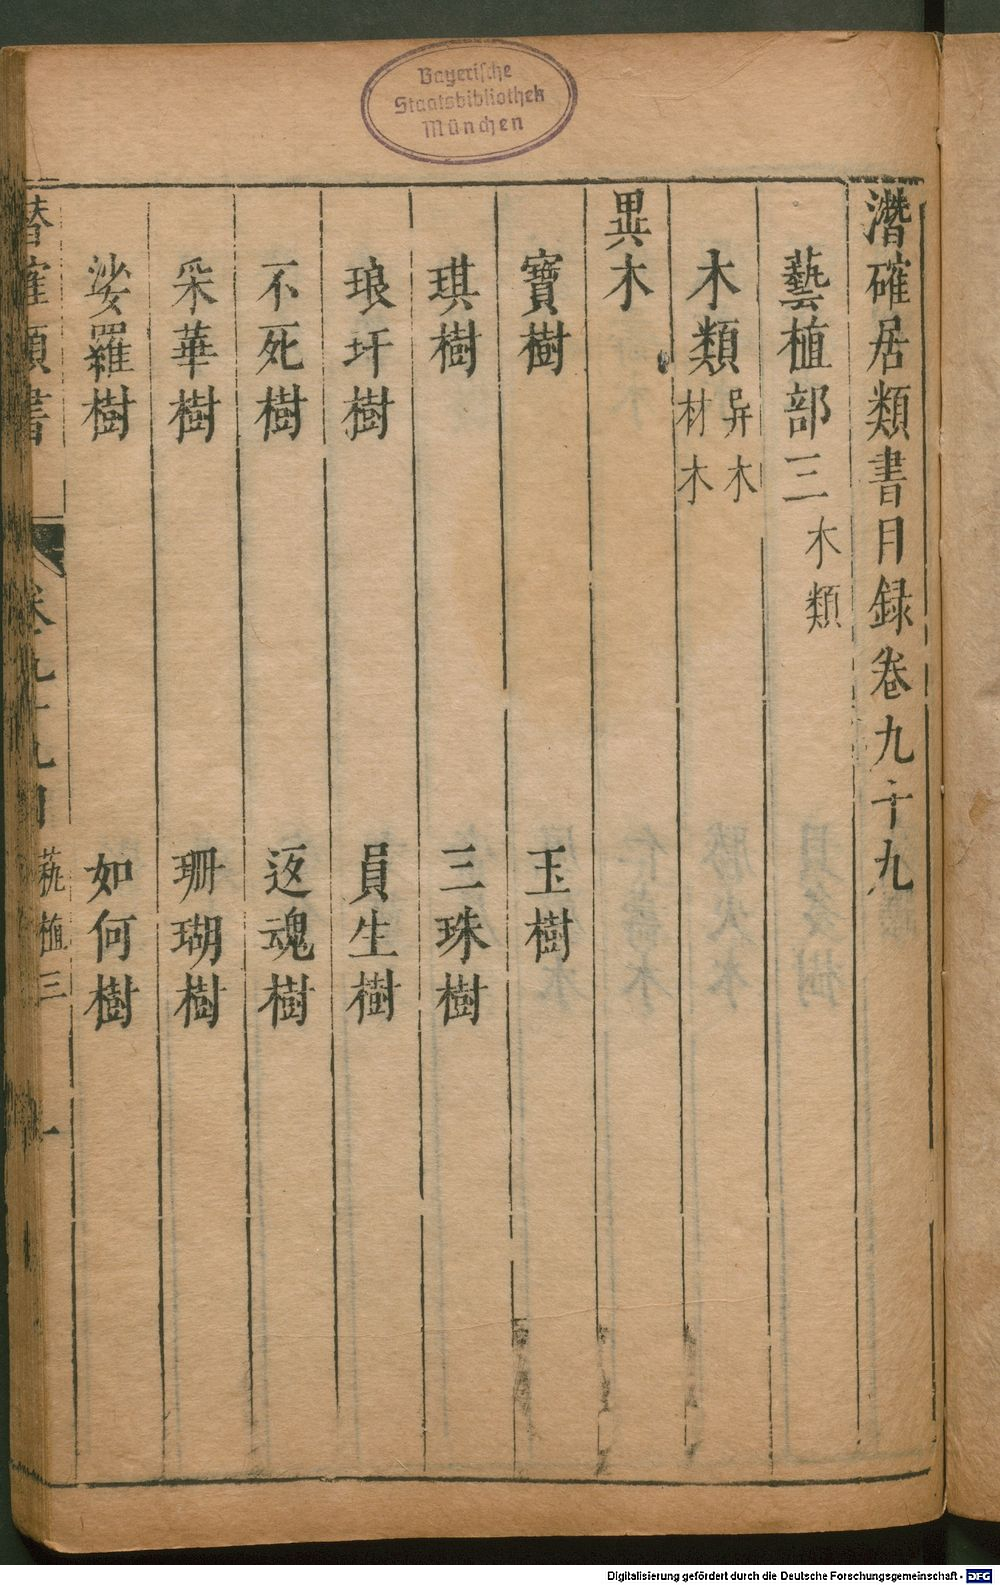 Bayerische
Staatsbibliothek
München
潛確居類書目録卷九十九
藝植部三木類
木類异木材木
異木
寶樹 玉樹
琪樹 三珠樹
琅玕樹 員生樹
不死樹 返魂樹
采華樹 珊瑚樹
娑羅樹 如何樹
潛確類書 卷九十九目 蓺植三 一
Digitalisierung gefördert durch die Deutsche Forschungsgemeinschaft - DFG